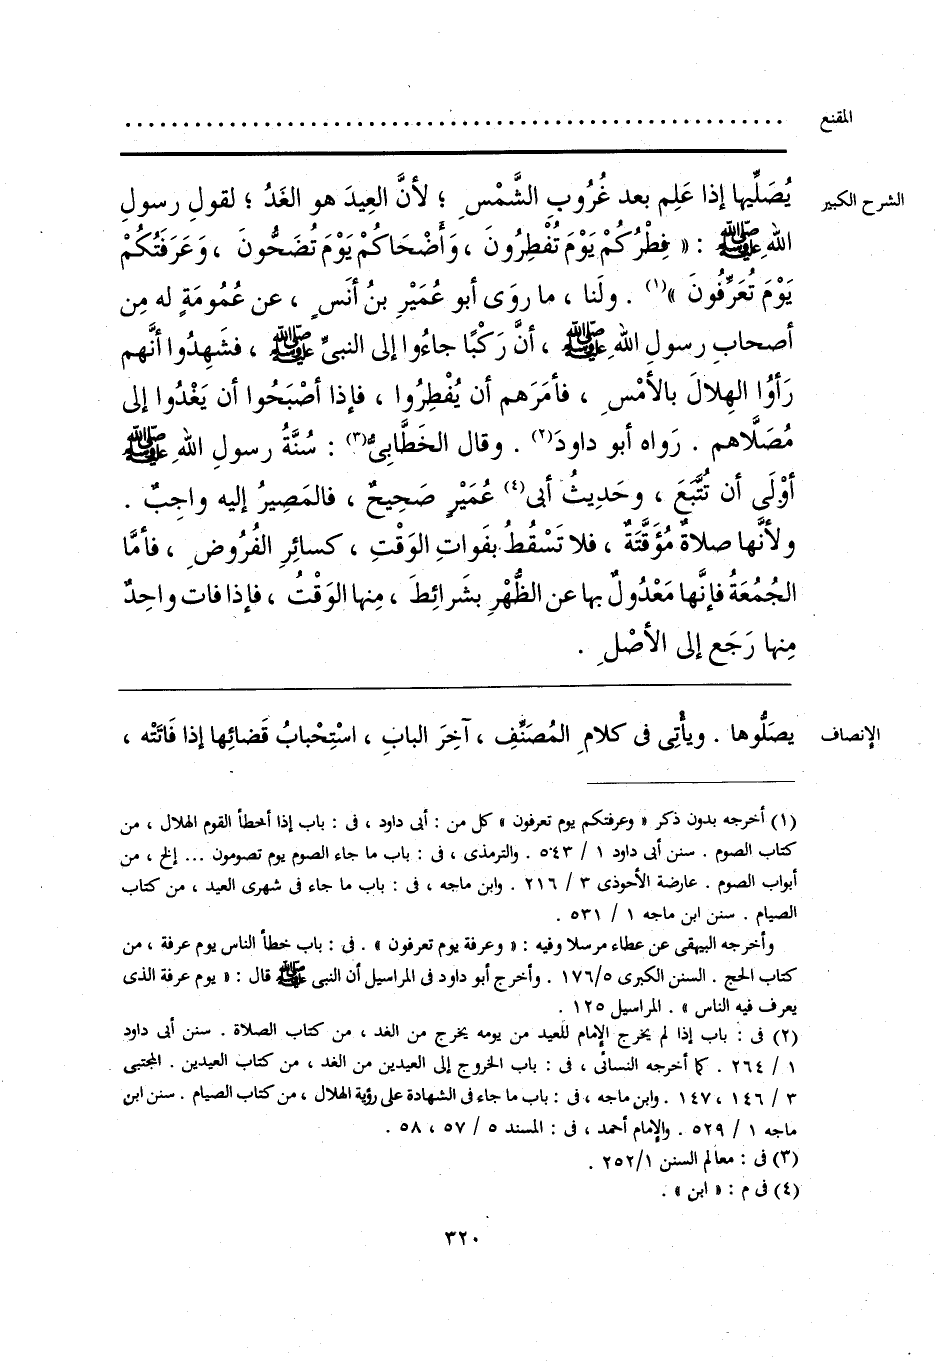 المقنع ..........................................................
الشرح الكبير يُصَلِّيها إذا عَلِم بعد غُرُوبِ الشَّمْسِ ؛ لأنَّ العِيدَ هو الغَدُ ؛ لقولِ رسولِ
اللهِ ﷺ : « فِطْرُكُمْ يَوْمَ تُفْطِرُونَ ، وَأَضْحَاكُمْ يَوْمَ تُضَحُّونَ ، وَعَرَفَتُكُمْ
يَوْمَ تُعَرِّفُونَ »(١) . ولَنا ، ما روَى أبو عُمَيْرِ بنُ أنَسٍ ، عن عُمُومَةٍ له مِن
أصحابِ رسولِ اللهِ ﷺ ، أنَّ رَكْبًا جاءُوا إلى النبىِّ ﷺ ، فشَهِدُوا أنَّهم
رَأَوُا الهِلالَ بالأَمْسِ ، فأمَرَهم أن يُفْطِرُوا ، فإذا أصْبَحُوا أن يَغْدُوا إلى
مُصَلَّاهم . رَواه أبو داودَ(٢) . وقال الخَطَّابِىُّ(٣) : سُنَّةُ رسولِ اللهِ ﷺ
أوْلَى أن تُتَّبَعَ ، وحَدِيثُ أبى(٤) عُمَيْرٍ صَحِيحٌ ، فالمَصِيرُ إليه واجِبٌ .
ولأنَّها صلاةٌ مُؤَقَّتَةٌ ، فلا تَسْقُطُ بفَواتِ الوَقْتِ ، كسائرِ الفُرُوضِ ، فأمَّا
الجُمُعَةُ فإنَّها مَعْدُولٌ بها عن الظُّهْرِ بشَرائِطَ ، مِنها الوَقْتُ ، فإذا فات واحِدٌ
مِنها رَجَع إلى الأصْلِ .
الإنصاف يصَلُّوها . ويأْتِى فى كلامِ المُصَنِّفِ ، آخِرَ البابِ ، اسْتِحْبابُ قَضائِها إذا فَاتَتْه ،
(١) أخرجه بدون ذكر « وعرفتكم يوم تعرفون » كل من : أبى داود ، فى : باب إذا أخطأ القوم الهلال ، من
كتاب الصوم . سنن أبى داود ١ / ٥٤٣ . والترمذى ، فى : باب ما جاء الصوم يوم تصومون ... إلخ ، من
أبواب الصوم . عارضة الأحوذى ٣ / ٢١٦ . وابن ماجه ، فى : باب ما جاء فى شهرى العيد ، من كتاب
الصيام . سنن ابن ماجه ١ / ٥٣١ .
وأخرجه البيهقى عن عطاء مرسلا وفيه : « وعرفة يوم تعرفون » . فى : باب خطأ الناس يوم عرفة ، من
كتاب الحج . السنن الكبرى ١٧٦/٥ . وأخرج أبو داود فى المراسيل أن النبى ﷺ قال : « يوم عرفة الذى
يعرف فيه الناس » . المراسيل ١٢٥ .
(٢) فى : باب إذا لم يخرج الإمام للعيد من يومه يخرج من الغد ، من كتاب الصلاة . سنن أبى داود
١ / ٢٦٤ . كما أخرجه النسائى ، فى : باب الخروج إلى العيدين من الغد ، من كتاب العيدين . المجتبى
٣ / ١٤٦ ، ١٤٧ . وابن ماجه ، فى : باب ما جاء فى الشهادة على رؤية الهلال ، من كتاب الصيام . سنن ابن
ماجه ١ / ٥٢٩ . والإمام أحمد ، فى : المسند ٥ / ٥٧ ، ٥٨ .
(٣) فى : معالم السنن ٢٥٢/١ .
(٤) فى م : « ابن » .
٣٢٠